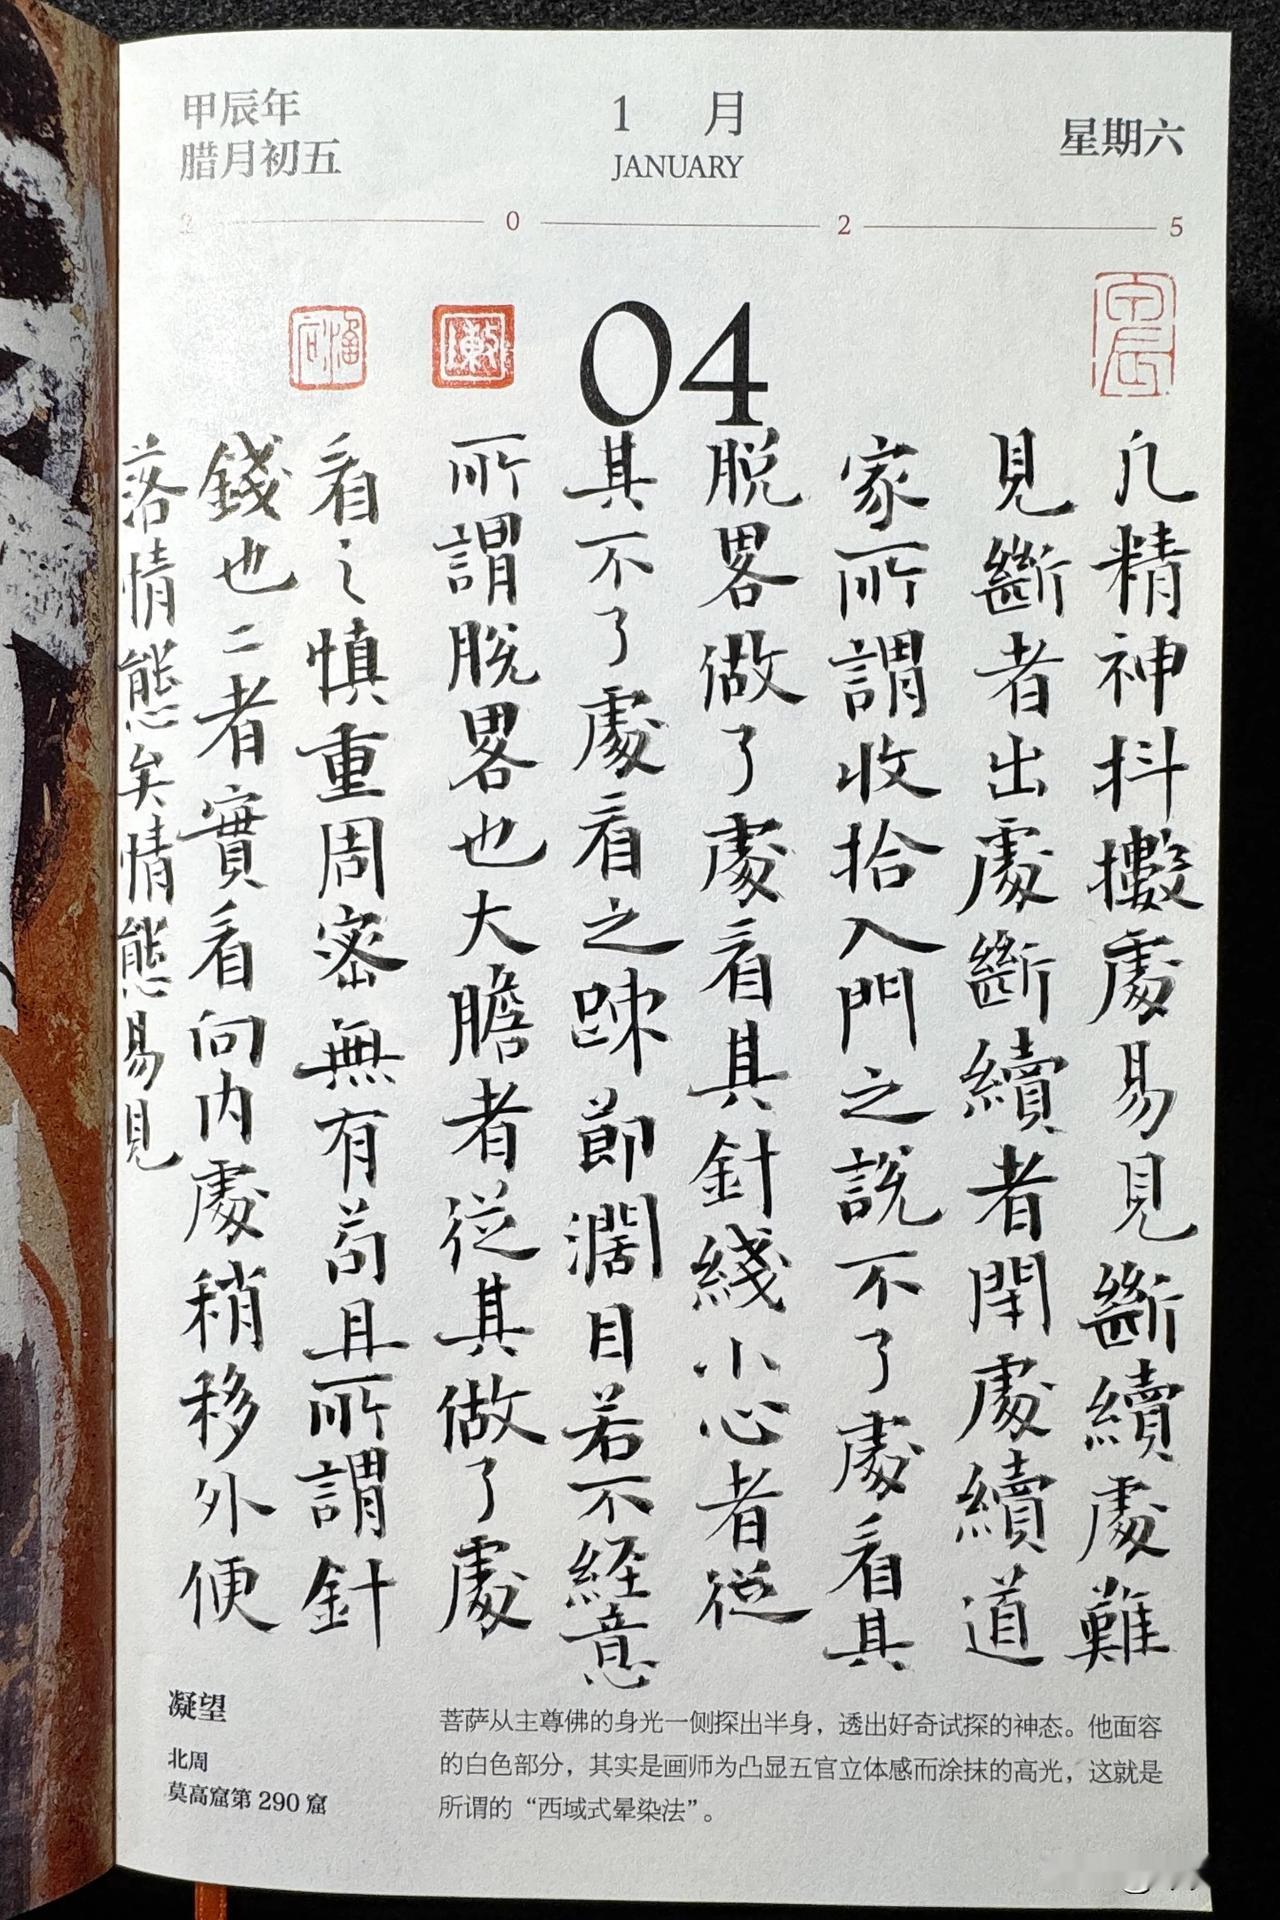 甲辰年
腊月初五
1 月
JANUARY
星期六
2 0 2 5
04
凡精神抖擻處易見斷續處難
見斷者出處斷續者閉處續道
家所謂收拾入門之說不了處看其
脱畧做了處看其針綫小心者從
其不了處看之踈節濶目若不經意
所謂脱畧也大膽者從其做了處
看之慎重周密無有苟且所謂針
錢也二者實看向内處稍移外便
落情態矣情態易見
凝望
北周
莫高窟第 290 窟
菩萨从主尊佛的身光一侧探出半身，透出好奇试探的神态。他面容
的白色部分，其实是画师为凸显五官立体感而涂抹的高光，这就是
所谓的“西域式晕染法”。